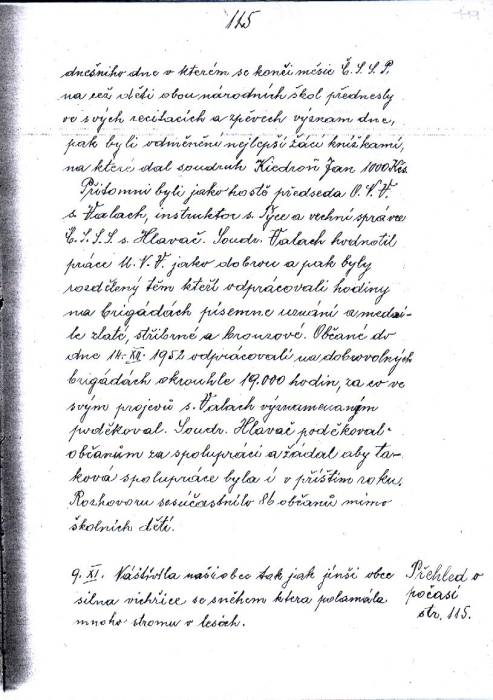 115
dnešního dne v kterém se končí měsíc Č.S.S.P.
na což děti obou národních škol přednesly
ve svých recitacích a zpěvech význam dne,
pak byli odměněni nejlepší žáci knížkami,
na které dal soudruh Kiedroň Jan 1000 Kčs.
Přítomni byli jako hosté předseda O.V.V.
s. Valach, instruktor s. Pyce a vechni správce
Č.S.S.S. s. Hlavač. Soudr. Valach hodnotil
práci M.V.V. jako dobrou a pak byly
rozděleny těm kteří odpracovali hodiny
na brigádách písemne uznání a medai-
le zlaté, stříbrné a bronzové. Občané do
dne 14. XII. 1952 odpracovali na dobrovolných
brigádách okrouhle 19.000 hodin, za co ve
svým projevů s. Valach významenaným
poděkoval. Soudr. Hlavač poděkoval
občanům za spolupráci a žádal aby ta-
ková spolupráce byla i v příštím roku.
Rozhovoru se súčastnilo 86 občanů mimo
školních dětí.
9. XI. Náštívila naši obec tak jak jinši obce
silna vichřice se sněhem ktera polamála
mnoho stromu v lesách.
Přehled o
počasí
str. 115.